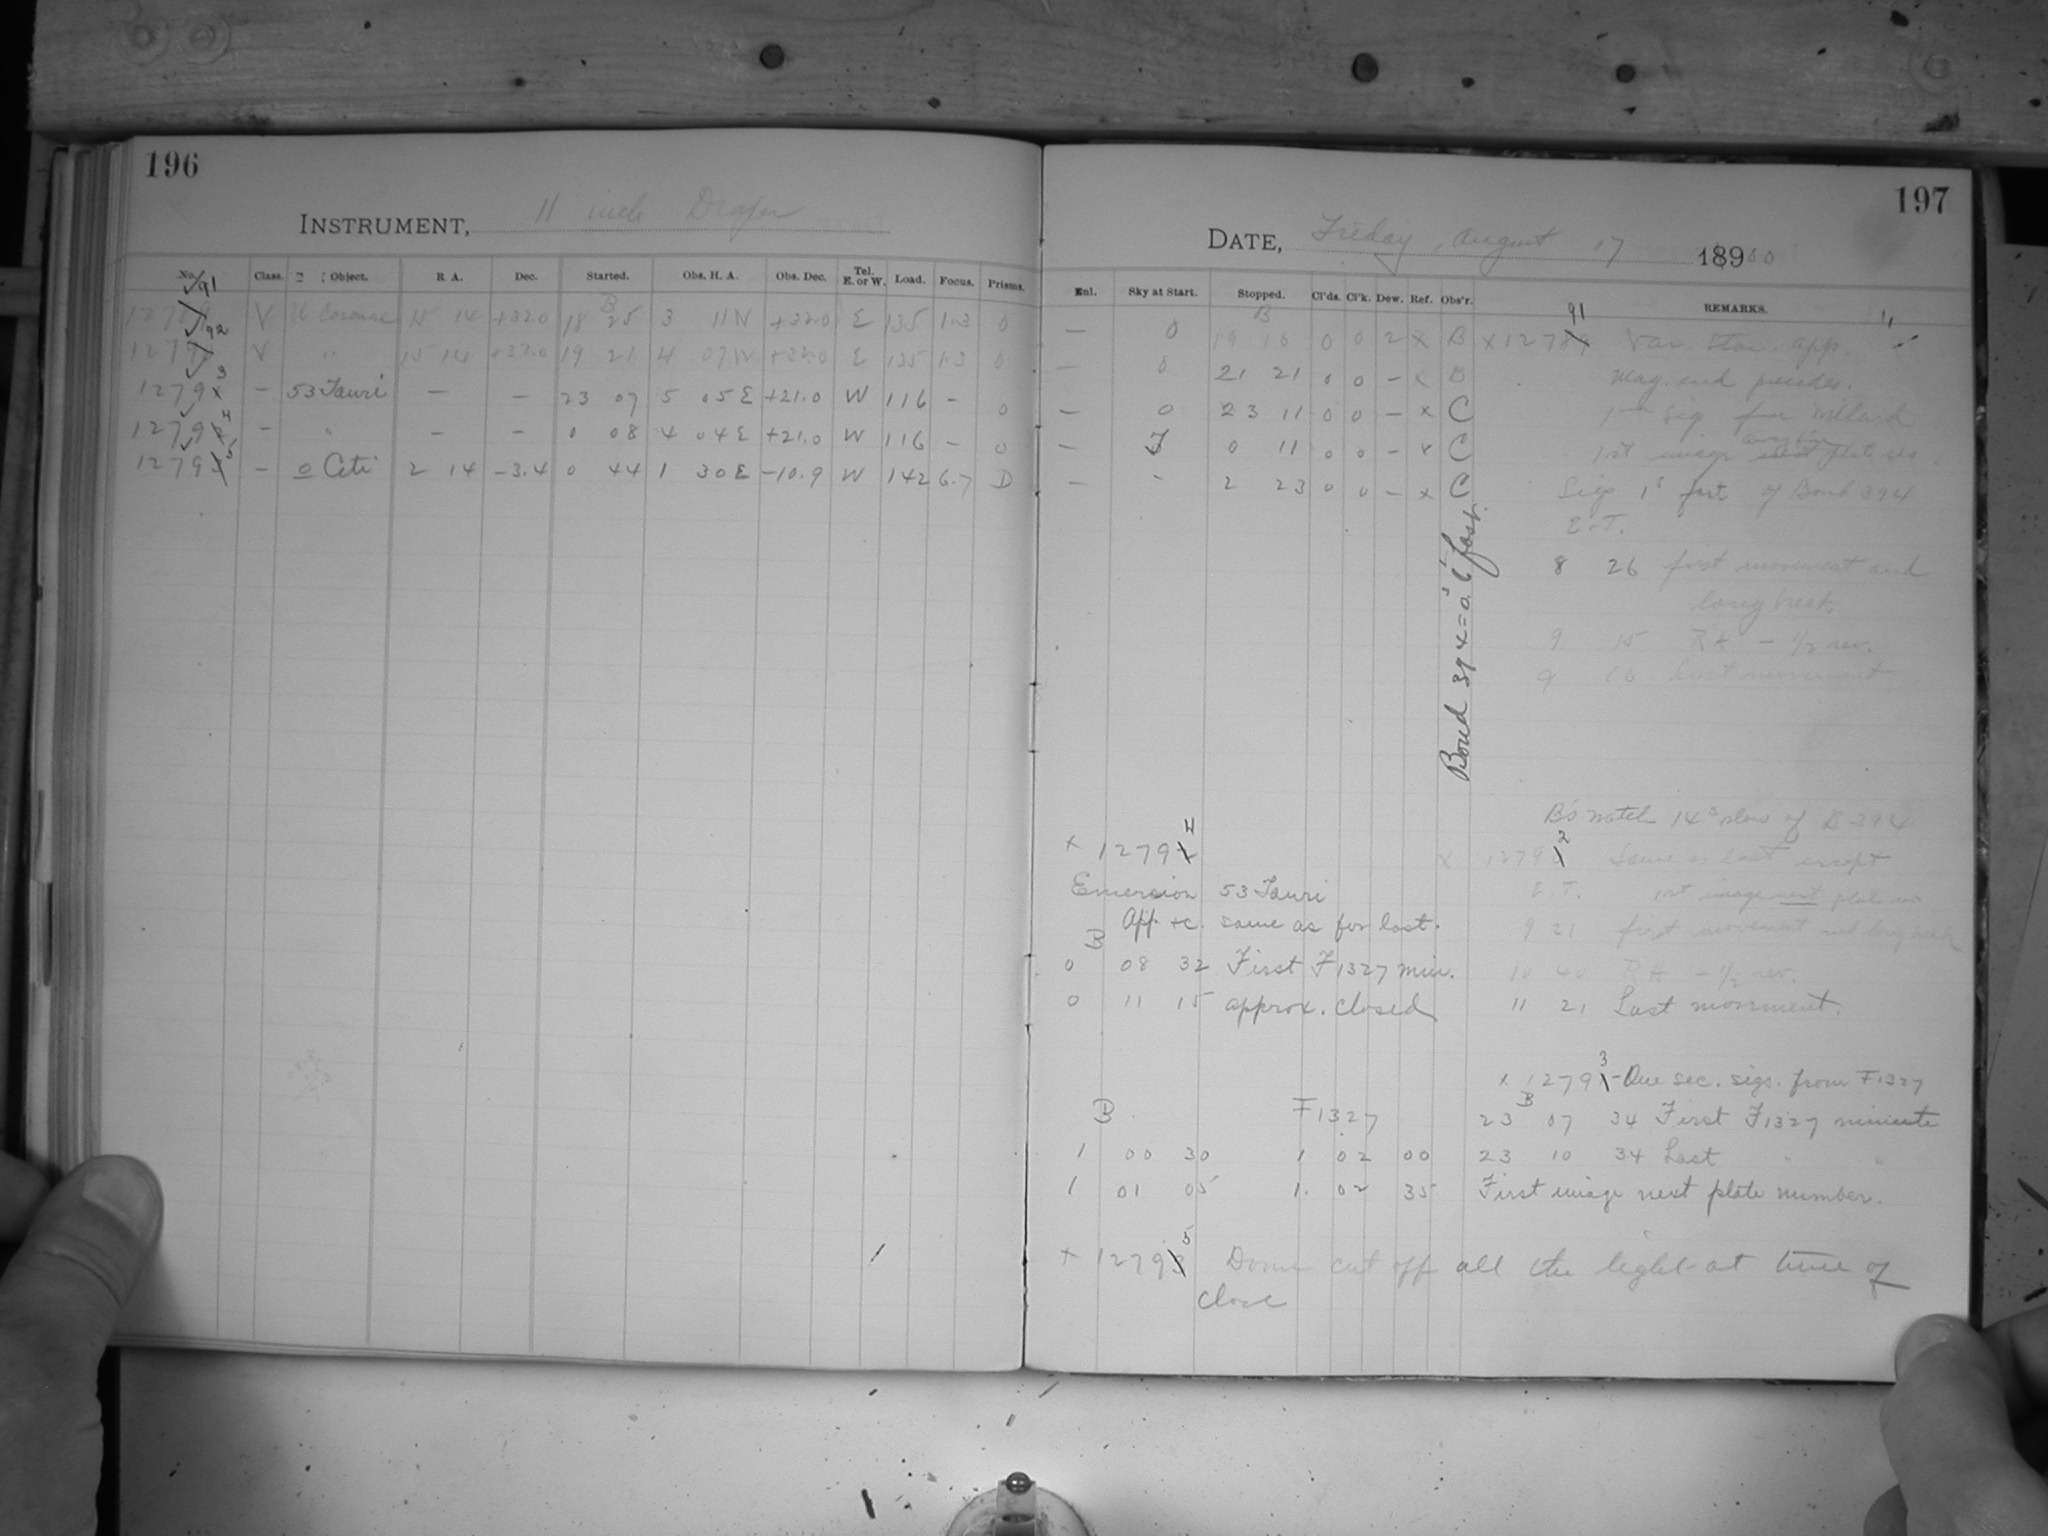 196
INSTRUMENT, 11 inch Draper
No. Class. Object. R. A. Dec. Started. Obs. H. A. Obs. Dec. Tel. E. or W. Load. Focus. Prisms.
91
B
V U Coronae 15 14 +32.0 18 25 3 11 W +32.0 E 135 1.3 0
92
V " 15 14 +32.0 19 21 4 07 W +32.0 E 135 1.3 0
3
1279 – 53 Tauri – – 23 07 5 05 E +21.0 W 116 – 0
4
1279 – " – – 0 08 4 04 E +21.0 W 116 – 0
5
1279 – o Ceti 2 14 –3.4 0 44 1 30 E –10.9 W 142 6.7 D
197
DATE, Friday, August 17 1890
Enl. Sky at Start. Stopped. Cl'ds. Cl'k. Dew. Ref. Obs'r. REMARKS.
B
91
– 0 19 16 0 0 2 x B x 1278 Var. star. app.
– 0 21 21 0 0 – x B Mag. end precedes.
– 0 23 11 0 0 – x C
– 0 11 0 0 – x C 1st image plate no.
– - 2 23 0 0 – x C Sigs 1s fast of Bond 394
E.T.
8 26 first movement and
long break.
9 15 RA – 1/2 rev.
9 16 last movement
Bond 394 = 0.6 fast.
B's watch 14s slow of B 394
x 1279 4
Emersion 53 Tauri
App. +c. same as for last.
B
0 08 32 First F1327 min.
0 11 15 approx. closed
x 1279 2 Same as last except
E.T. 1st image next plate no.
9 21 first movement and long break
10 40 RA – 1/2 rev.
11 21 Last movement.
x 1279 3 – One sec. sigs. from F1327
B
23 07 34 First F1327 minute
23 10 34 Last " "
First image next plate number.
B F1327
1 00 30 1 02 00
1 01 05 1. 02 35
x 1279 5 Dome cut off all the light at time of
close